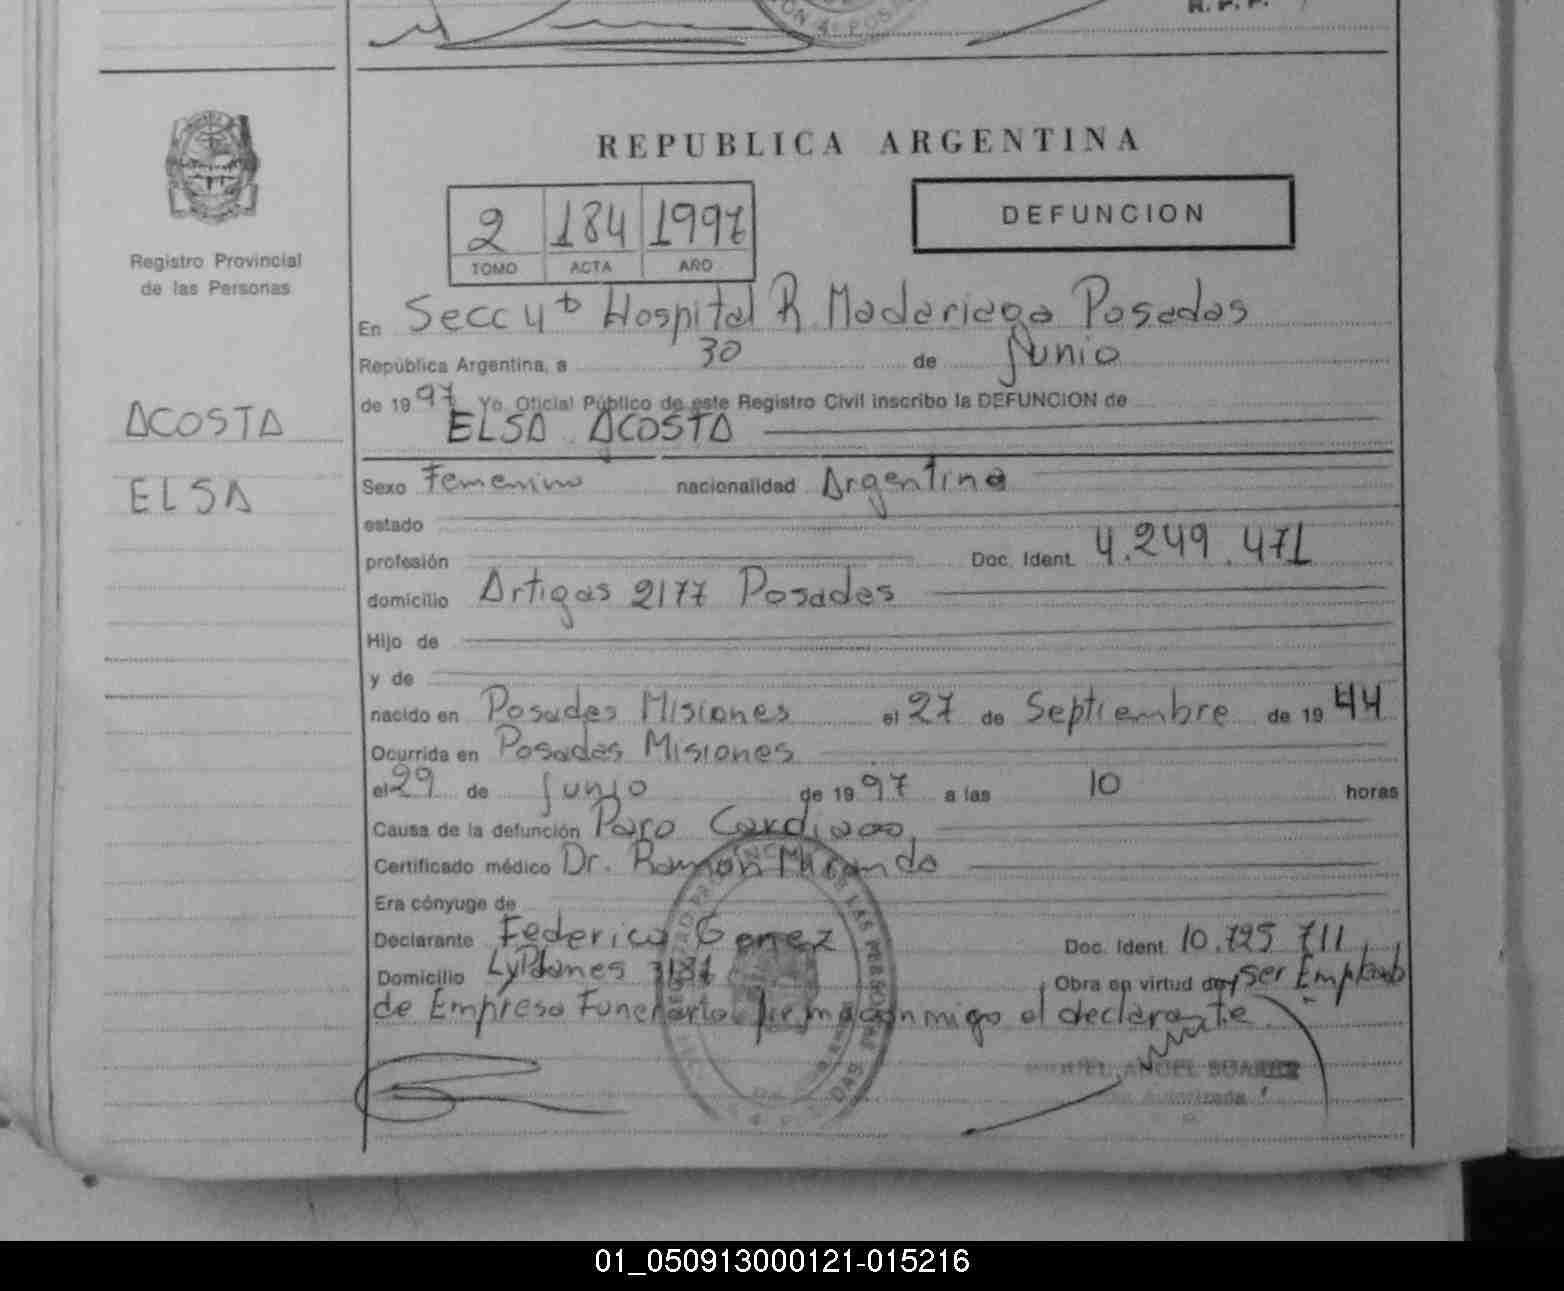 R. P. P.
REPUBLICA ARGENTINA
2 184 1997
TOMO ACTA AÑO
DEFUNCION
Registro Provincial
de las Personas
En Secc 4ta Hospital R. Madariaga Posadas
República Argentina, a 30 de Junio
de 1997 Yo, Oficial Público de este Registro Civil inscribo la DEFUNCION de
ACOSTA
ELSA ACOSTA
ELSA
Sexo Femenino nacionalidad Argentina
estado
profesión Doc. Ident. 4.249.471
domicilio Artigas 2177 Posadas
Hijo de
y de
nacido en Posadas Misiones el 27 de Septiembre de 1944
Ocurrida en Posadas Misiones
el 29 de Junio de 1997 a las 10 horas
Causa de la defunción Paro Cardiaco
Certificado médico Dr. Ramon Miranda
Era cónyuge de
Declarante Federico Gomez Doc. Ident. 10.725.711
Domicilio Obra en virtud de ser Empleado
de Empresa Funeraria firma conmigo el declarante
ANGEL SUAREZ
Autorizada
01_050913000121-015216